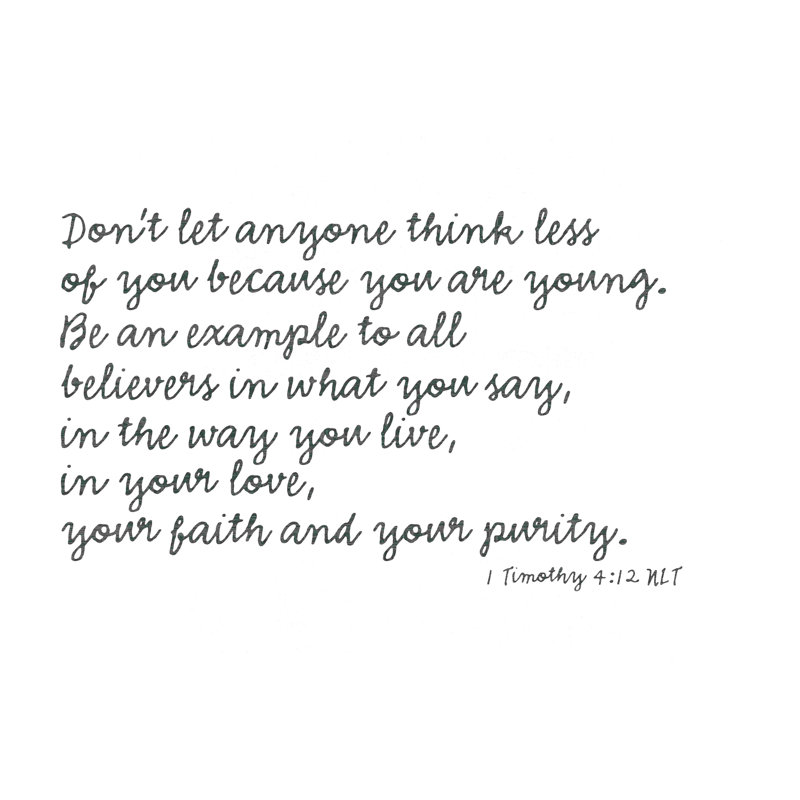 Don't let anyone think less
of you because you are young.
Be an example to all
believers in what you say,
in the way you live,
in your love,
your faith and your purity.
1 Timothy 4:12 NLT